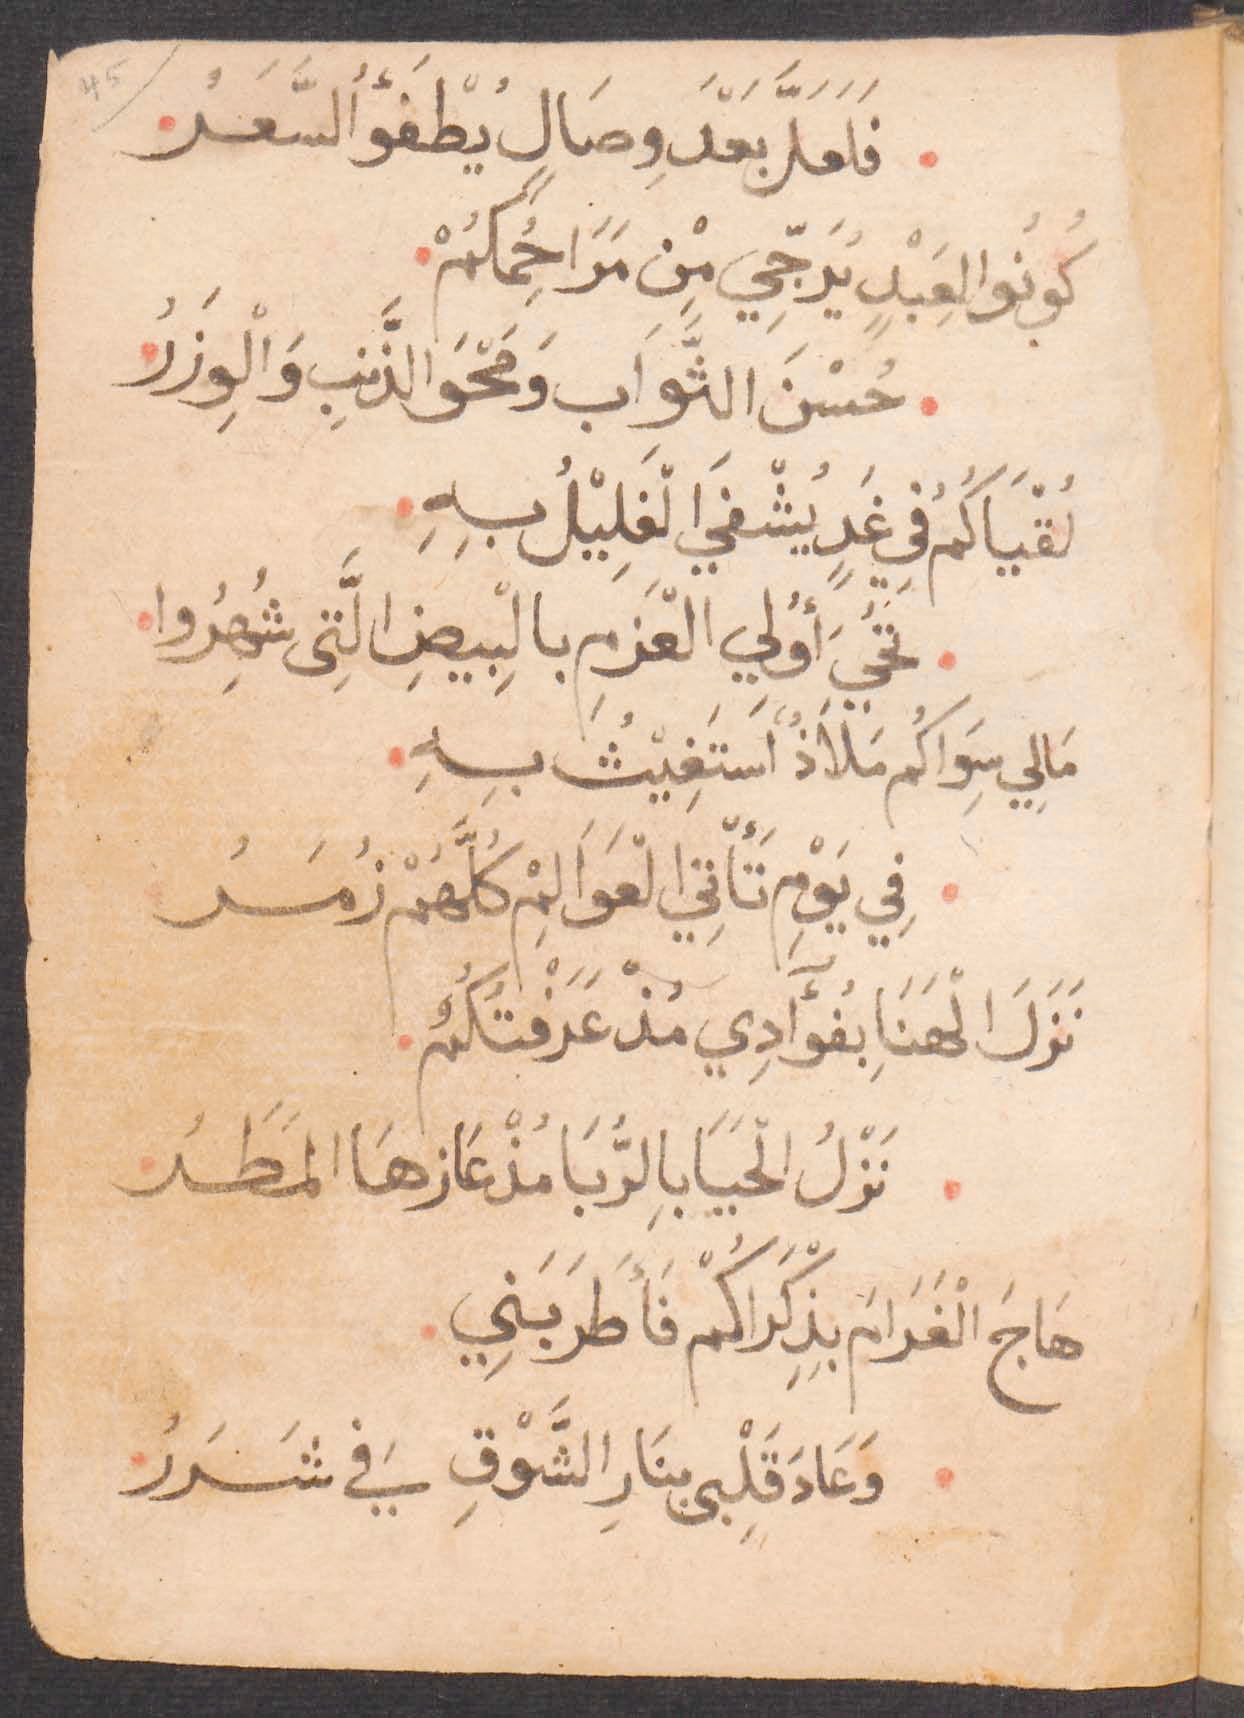 45
فَلَعَلَّ بَعْدَ وِصَالٍ يُطْفَؤُ السَّعَرُ
كُونُوا لِعَبْدٍ يُرَجِّي مِنْ مَرَاحُمِكُمْ
حُسْنَ الثَّوَابِ وَمَحْوَ الذَّنبِ وَالْوِزَرُ
لُقْيَاكُمُ فِي غَدٍ يُشْفَي الْغَلِيْلُ بِهِ
أُولِي الْعَزمِ بالْبِيضِ الَّتِى شُهِرُوا
مَالِي سِوَاكُم مَلَاذٌ اَسْتَغِيْثُ بِهِ
فِي يَوْمِ تَأْتِي الْعَوَالِمْ كُلُّهُمْ زُمَرُ
نَزَلَ الْهَنَا بِفُؤَآدِي مُذْ عَرَفْتُكُمُ
نَزْلُ الْحَيَا بِالرُّبَا مُذْ عَازهَا الْمَطَرُ
هَاجَ الْغَرَامَ بِذِكْرَاكُمْ فَأَطْرَبَنِي
وَعَادَ قَلْبِى بِنَارِ الشَّوْقِ فِي شَرَرُ